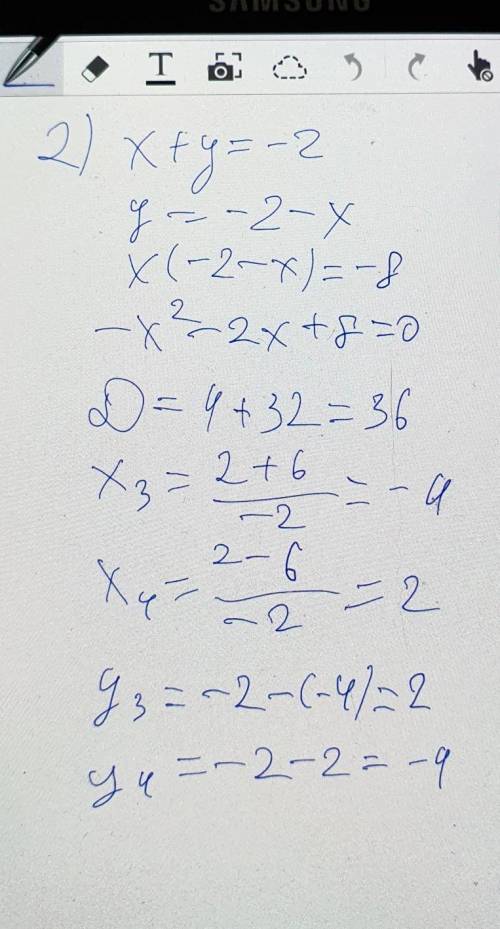 SAMSUNG
T
2) x+y=-2
y=-2-x
x(-2-x)=-8
-x²-2x+8=0
D=4+32=36
x₃=\frac{2+6}{-2}=-4
x₄=\frac{2-6}{-2}=2
y₃=-2-(-4)=2
y₄=-2-2=-4